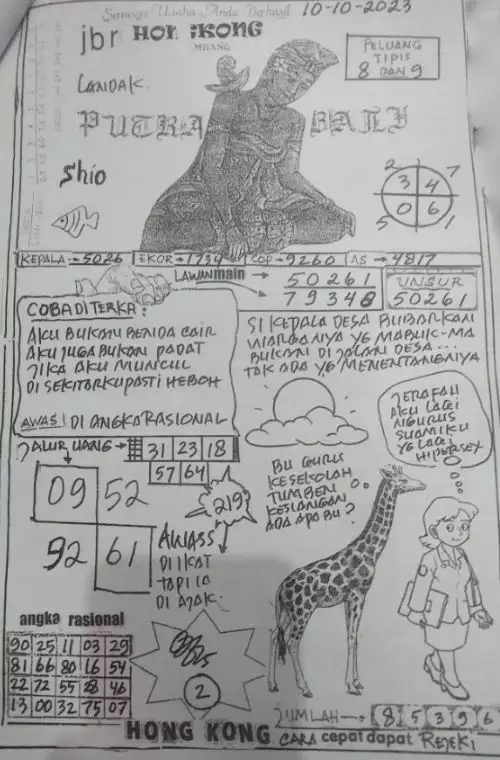 Semoga Usaha Anda Berhasil 10-10-2023
jbr HON IKONG
MBANG
PELUANG
TIPIS
8 DAN 9
LANDAK.
PUTRA BALI
Shio
2 7
3 4
0 6
5 1
KEPALA→5026 EKOR→1734 COP→9260 AS→4817
LAWAN main → 50261
79348
UNSUR
50261
COBA DITERKA:
AKU BUKAN BENDA CAIR
AKU JUGA BUKAN PADAT
JIKA AKU MUNCUL
DI SEKITARKU PASTI HEBOH
AWAS! DI ANGKA RASIONAL
SI KEPALA DESA BUBARKAN
WARGANYA YG MABUK-MA
BUKAN DI JALAN DESA...
TAK ADA YG MENENTANGNYA
JALUR UANG→ 31 23 18
57 64
09 52
92 61
219
AWASS
DIIKAT
TAPI IA
DI AJAK.
BU GURU
KESEKOLAH
TUMBEN
KESIANGAN
ADA APA BU?
JERAPAH
AKU LAGI
NGURUS
SUAMIKU
YG LAGI
HIPERSEX
angka rasional
90 25 11 03 29
81 66 80 16 54
22 72 55 28 46
13 00 32 75 07
2
JUMLAH→ 8 5 3 9 6
HONG KONG CARA cepat dapat REJEKI